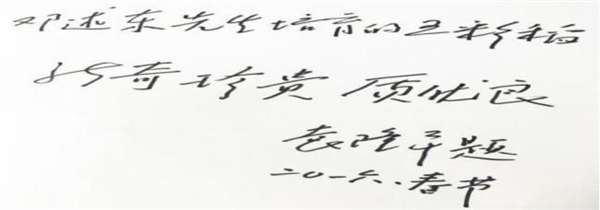 邓述东先生培育的五彩稻
奇珍贵 质优良
袁隆平题
二〇一六.春节